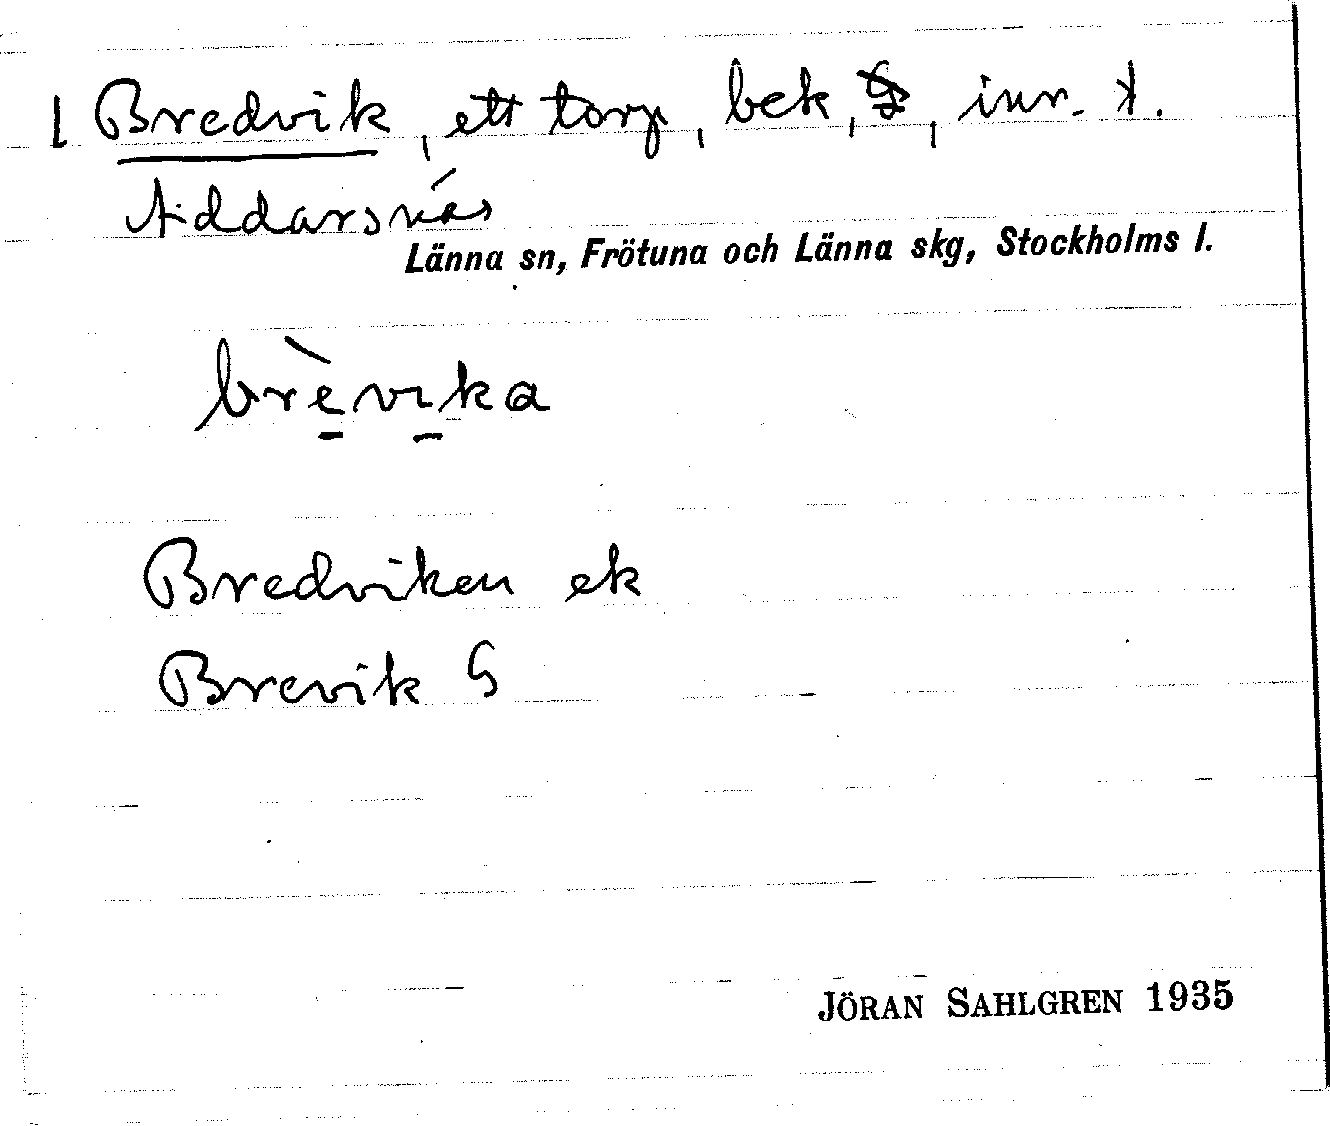 Bredvik, ett torp, bek, G, inr. t.
Aiddarsnäs
Länna sn, Frötuna och Länna skg, Stockholms l.
brèvika
Bredviken ek
Brevik G
JÖRAN SAHLGREN 1935